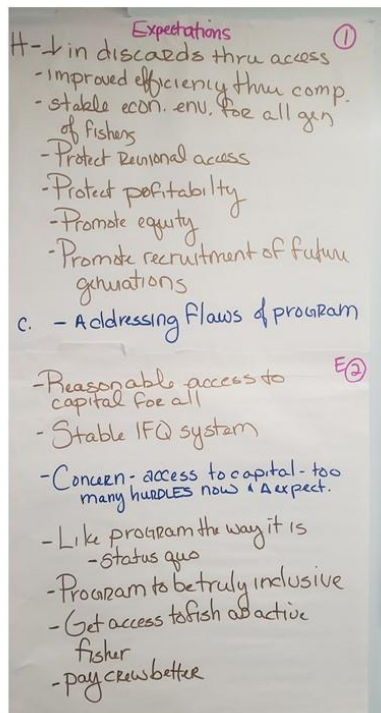 Expectations ①
H-↓ in discards thru access
- Improved efficiency thru comp.
- stable econ. env. for all gen
of fishers
- Protect Regional access
- Protect pofitabilty
- Promote equity
- Promote recruitment of future
generations
C. - Addressing flaws of program
E②
- Reasonable access to
capital for all
- Stable IFQ system
- Concern - access to capital - too
many hurdles now & Δ expect.
- Like program the way it is
- Status quo
- Program to be truly inclusive
- Get access to fish as active
fisher
- pay crew better